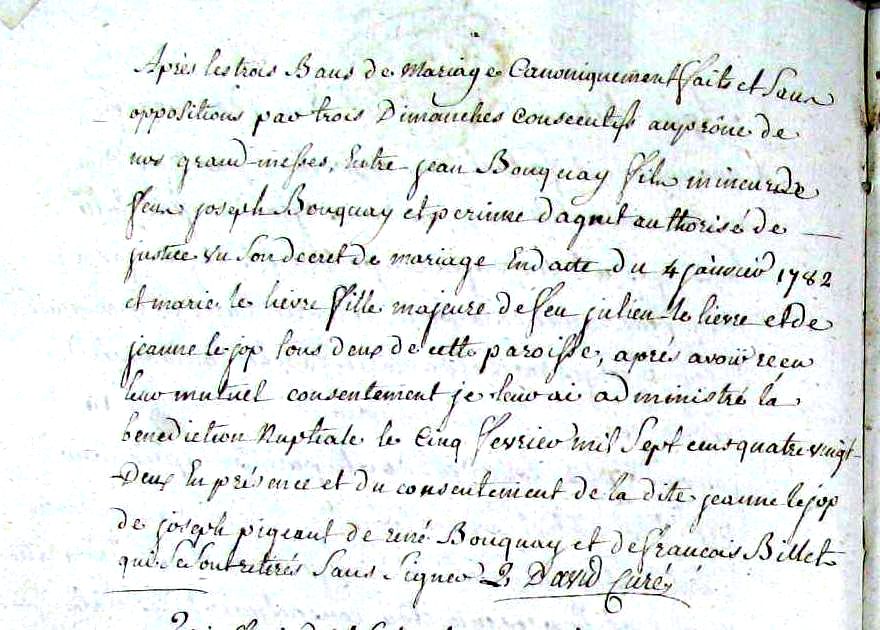 Après les trois Bans de Mariage Canoniquement faits et Sans
oppositions par trois Dimanches consecutifs au prône de
nos grand-messes, Entre jean Bouquay fils mineur de
feu joseph Bouquay et perinne daguet authorisé de
justice vu Son decret de mariage En datte du 4 janvier 1782
et marie le lievre fille majeure de feu julien le lievre et de
jeanne le jop tous deux de cette paroisse, aprés avoir recu
leur mutuel consentement je leur ai administré la
benediction Nuptiale le Cinq fevrier mil Sept cens quatre vingt-
Deux En présence et du consentement de la dite jeanne le jop
de joseph pigeaut de rené Bouquay et de francois Billet
qui Se Sont retirés Sans Signer David Curé